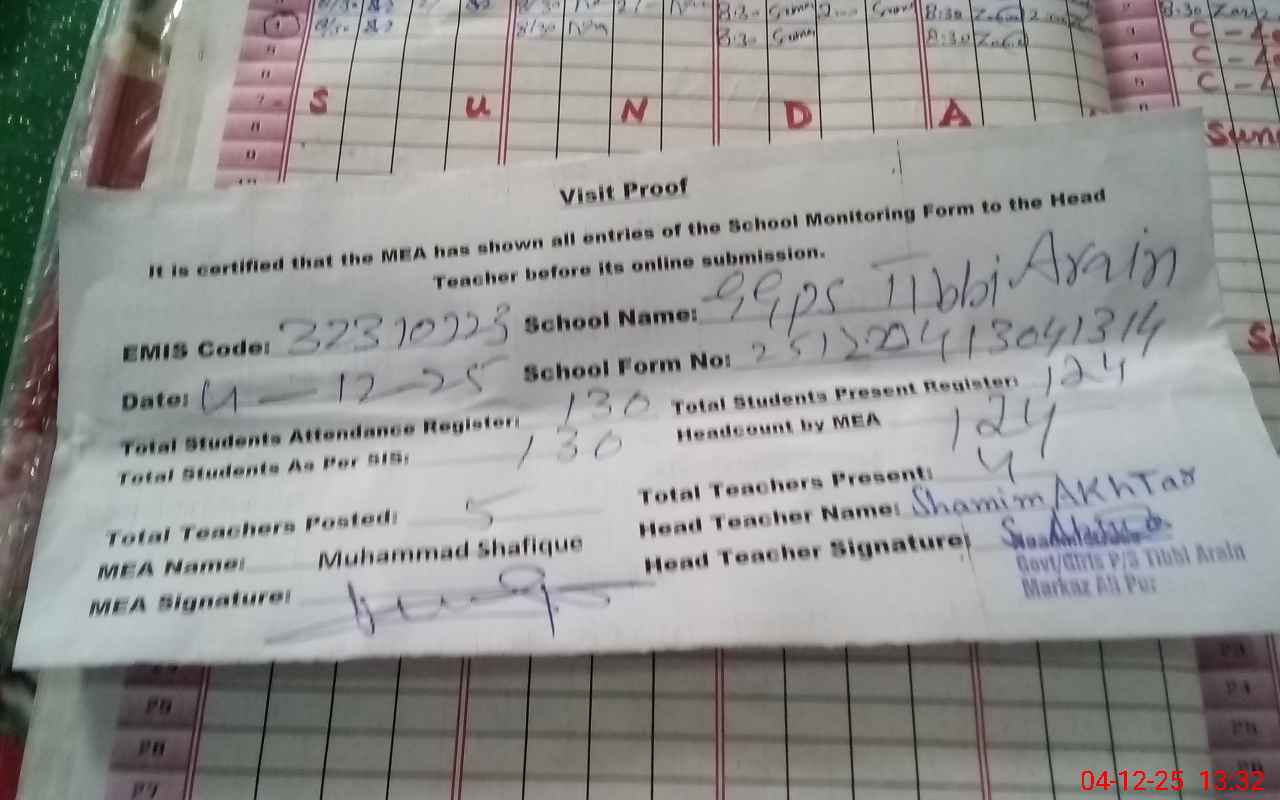 S U N D A
Sun
C -
C -
C -
Visit Proof
It is certified that the MEA has shown all entries of the School Monitoring Form to the Head
Teacher before its online submission.
EMIS Code: 32310223 School Name: GGPS Tibbi Arain
Date: 4-12-25 School Form No:
Total Students Attendance Register: 130 Total Students Present Register: 124
Total Students As Per SIS: 130 Headcount by MEA 124
Total Teachers Posted: 5 Total Teachers Present: 4
MEA Name: Muhammad Shafique Head Teacher Name: Shamim AKhTar
MEA Signature: Head Teacher Signature:
Govt/Girls P/S Tibbi Arain
Markaz Ali Pur
25
26
27
04-12-25 13:32